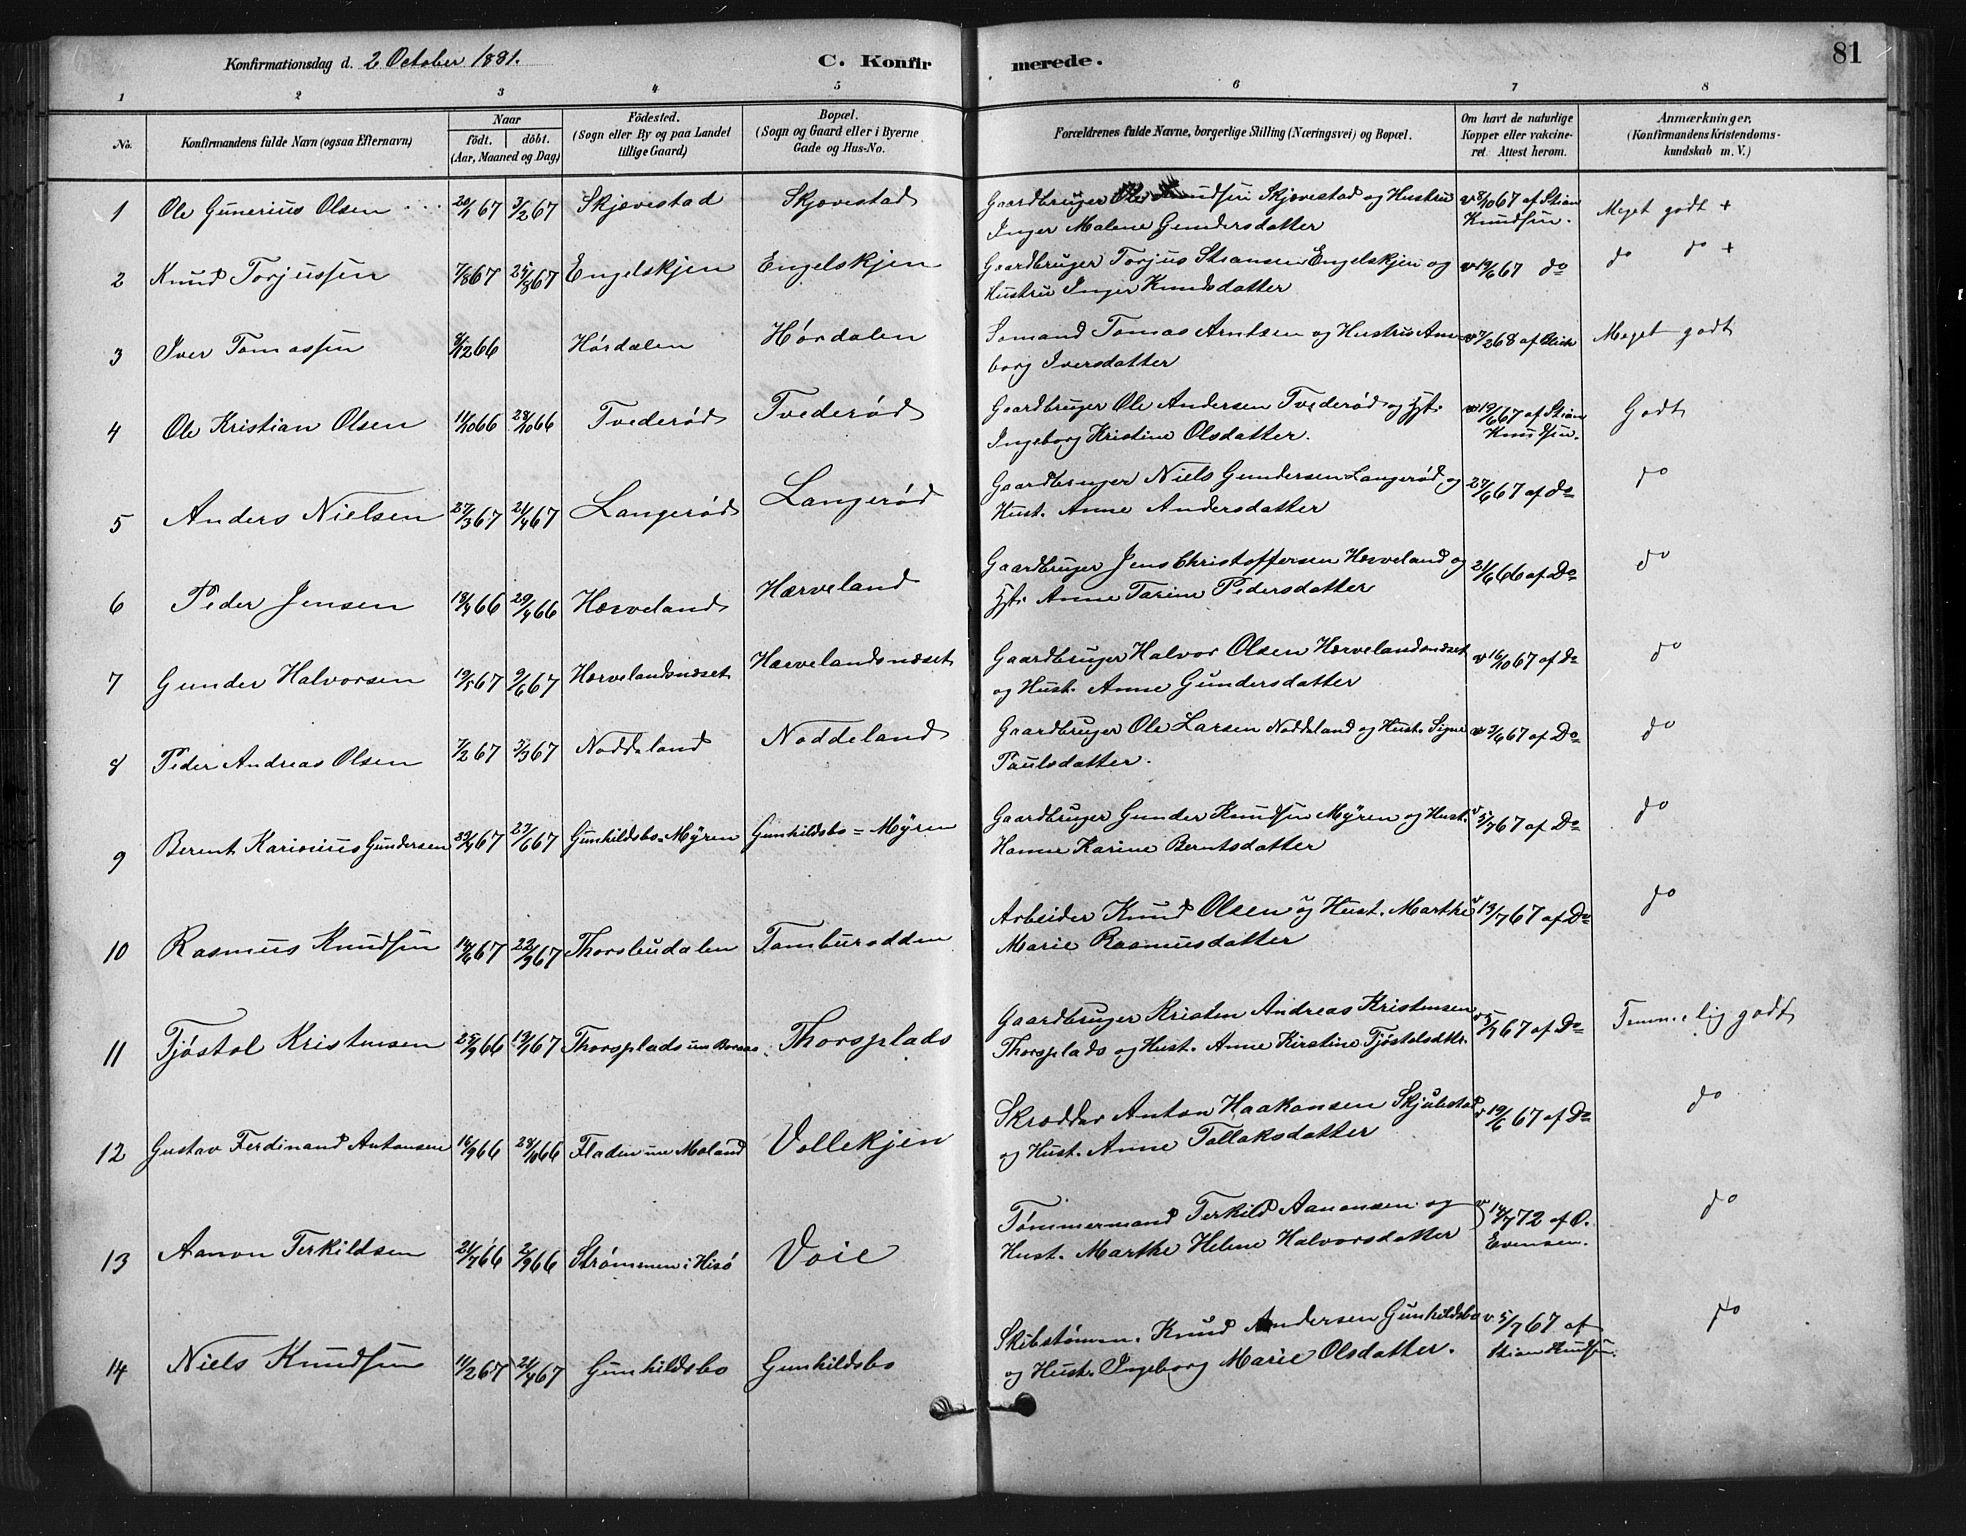 Konfirmationsdag d. 2 October 1881. C. Konfirmerede. 81
1 2 3 4 5 6 7 8
No. Konfirmandens fulde Navn (ogsaa Efternavn) Naar födt. döbt. (Aar, Maaned og Dag) Födested. (Sogn eller By og paa Landet tillige Gaard) Bopæl. (Sogn og Gaard eller i Byerne Gade og Hus-No. Forældrenes fulde Navne, borgerlige Stilling (Næringsvei) og Bopæl. Om havt de naturlige Kopper eller vakcineret. Attest herom. Anmærkninger. (Konfirmandens Kristendomskundskab m. V.)
1 Ole Gunerius Olsen 20/1 67 3/2 67 Skjævestad Skjævestad Gaardbruger Ole Knudsen Skjævestad og Hustru v 8/10 67 af Stian Meget godt +
Inger Malene Gundersdatter Knudsen.
2 Knud Torjussen 7/8 67 25/8 67 Engelskjen Engelskjen Gaardbruger Torjus Engelskjen og v 19/6 67 do do do +
Hustru Inger Knudsdatter
3 Iver Tomassen 8/12 66 Hórdalen Hórdalen Sømand Tomas Arntsen og Hustru Anne v 7/2 68 af Meget godt
borg Iversdatter
4 Ole Kristian Olsen 11/10 66 28/10 66 Tvederød Tvederød Gaardbruger Ole Andersen Tvederød og Hst. v 19/6 67 af Stian Godt
Ingeborg Kristine Olsdatter. Knudsen.
5 Anders Nielsen 27/3 67 21/4 67 Langerød Langerød Gaardbruger Niels Gundersen Langerød, og 27/6 67 af do do
Hust. Anne Andersdatter
6 Peder Jensen 18/4 66 29/4 66 Hærveland Hærveland Gaardbruger Jens Christoffersen Hærveland og 21/6 66 af Do do
Hst. Anne Tarine Pedersdatter
7 Gunder Halvorsen 19/5 67 9/6 67 Hærvelandsnæset Hærvelandsnæset Gaardbruger Halvor Olsen Hærvelandsnæset v 16/10 67 af Do do
og Hust. Anne Gundersdatter
8 Peder Andreas Olsen 7/2 67 3/3 67 Noddeland Noddeland Gaardbruger Ole Larsen Noddeland og Hust. Signe v 3/6 67 af Do do
Paulsdatter.
9 Berent Karinius Gundersen 67 23/6 67 Gunhildsbo-Myren Gunhildsbo = Myren Gaardbruger Gunder Knudsen Myren og Hust. v 5/7 67 af Do do
Hanne Karine Berntsdatter
10 Rasmus Knudsen 67 22/9 67 Thorsbudalen Tambursodden Arbeider Knud Olsen og Hust. Marthe v 13/7 67 af Do do
Marie Rasmusdatter
11 Tjöstol Kristensen 25/9 66 13/1 67 Thorsplads un Boraas. Thorsplads Gaardbruger Kristen Andreas Kristensen v 5/7 67 af Do Temmelig godt
Thorsplads og Hust. Anne Kirstine Tjöstolsdtr.
12 Gustav Ferdinand Antonsen 16/9 66 28/10 66 Fladen un Moland Vollekjen Skrædder Anton Haakonsen Skjulestad v 19/6 67 af Do do
og Hust. Anne Tallaksdatter
13 Aanon Terkildsen 21/7 66 2/9 66 Strømmen i Hisø Voie Tømmermand Terkild Aanonsen og v 14/7 72 af O. do
Hust. Marthe Helene Halvorsdatter Evensen.
14 Niels Knudsen 11/2 67 21/4 67 Gunhildsbo Gunhildsbo Skibstømm. Knud Andersen Gunhildsbo v 5/7 67 af do
og Hust. Ingeborg Marie Olsdatter. Stian Knudsen.